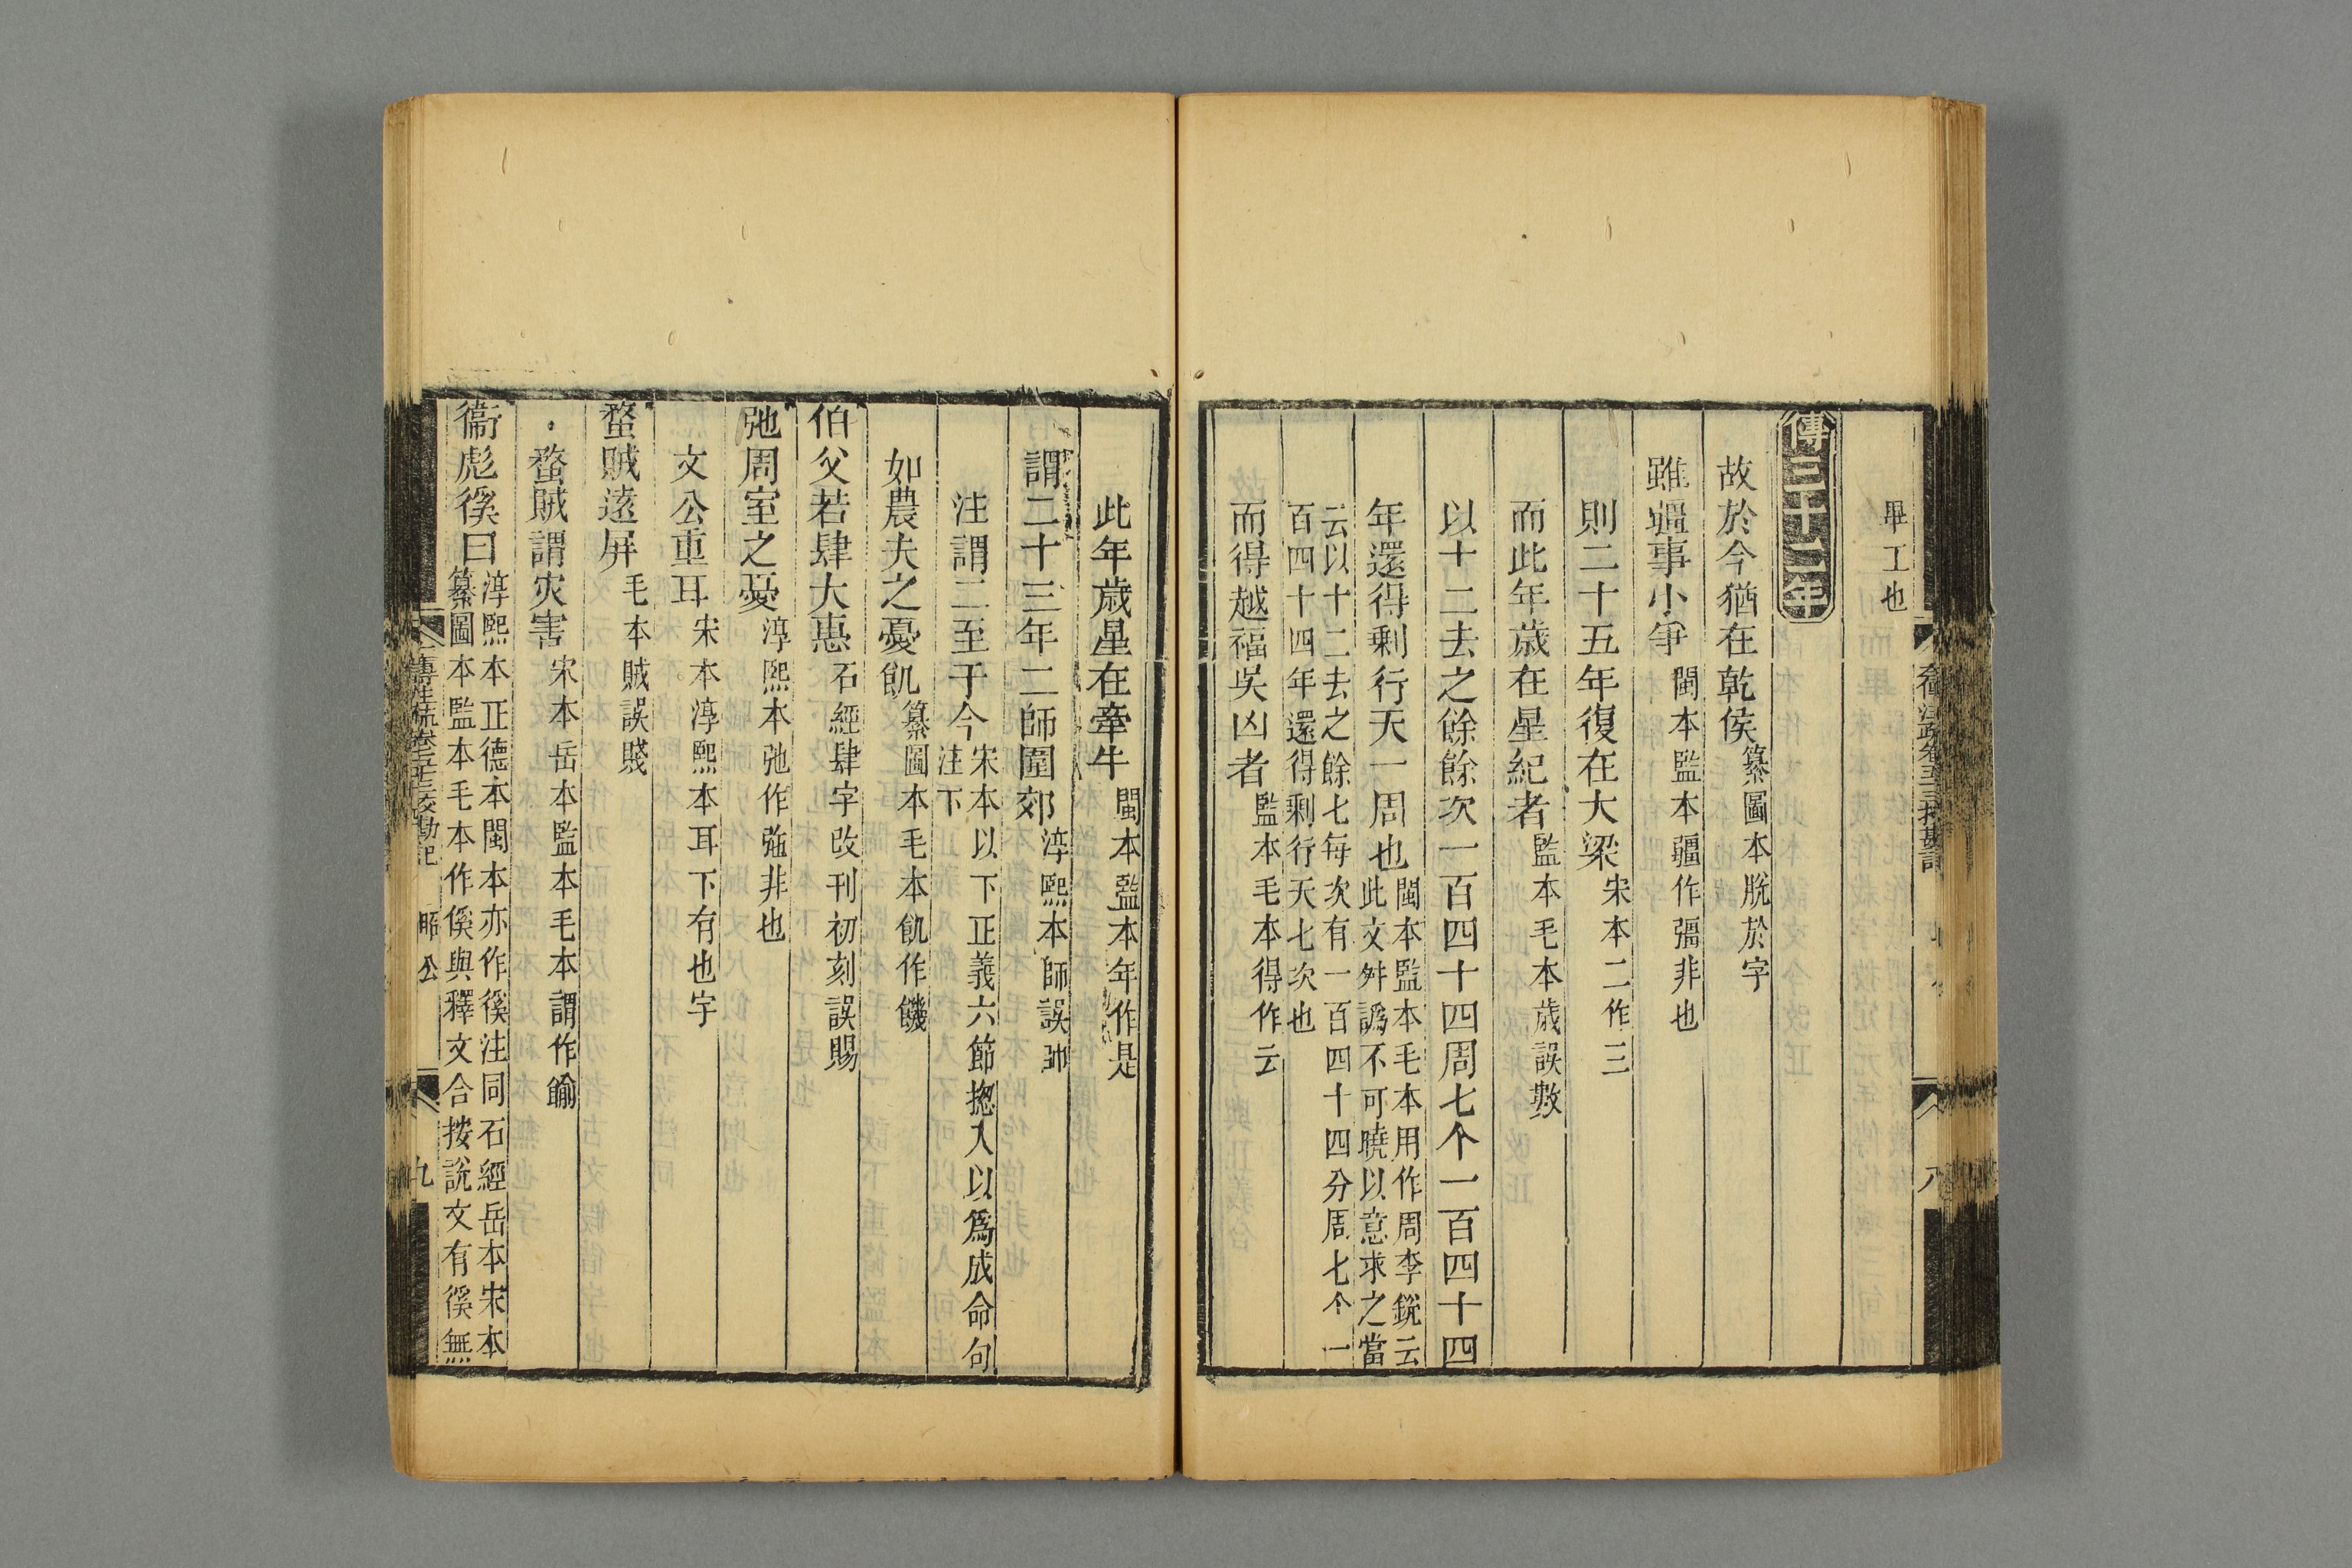 畢工也
傳三十二年
故於今猶在乾侯纂圖本脫於字
雖疆事小爭閩本監本疆作彊非也
則二十五年復在大梁宋本二作三
而此年歲在星紀者監本毛本歲誤數
以十二去之餘餘次一百四十四周七个一百四十四
年還得剩行天一周也閩本監本毛本用作周李銳云
此文舛譌不可曉以意求之當
云以十二去之餘七每次有一百四十四分周七个一
百四十四年還得剩行天七次也
而得越福吳凶者監本毛本得作云
此年歲星在牽牛閩本監本年作是
謂二十三年二師圍郊淳熙本師誤帥
注謂二至于今宋本以下正義六節揔入以爲成命句
注下
如農夫之憂飢纂圖本毛本飢作饑
伯父若肆大惠石經肆字改刊初刻誤賜
弛周室之憂淳熙本弛作㢮非也
文公重耳宋本淳熙本耳下有也字
蝥賊遠屏毛本賊誤賤
蝥賊謂灾害宋本岳本監本毛本謂作喻
衞彪徯曰淳熙本正德本閩本亦作徯注同石經岳本宋本
纂圖本監本毛本作傒與釋文合按說文有徯無
昭公
九